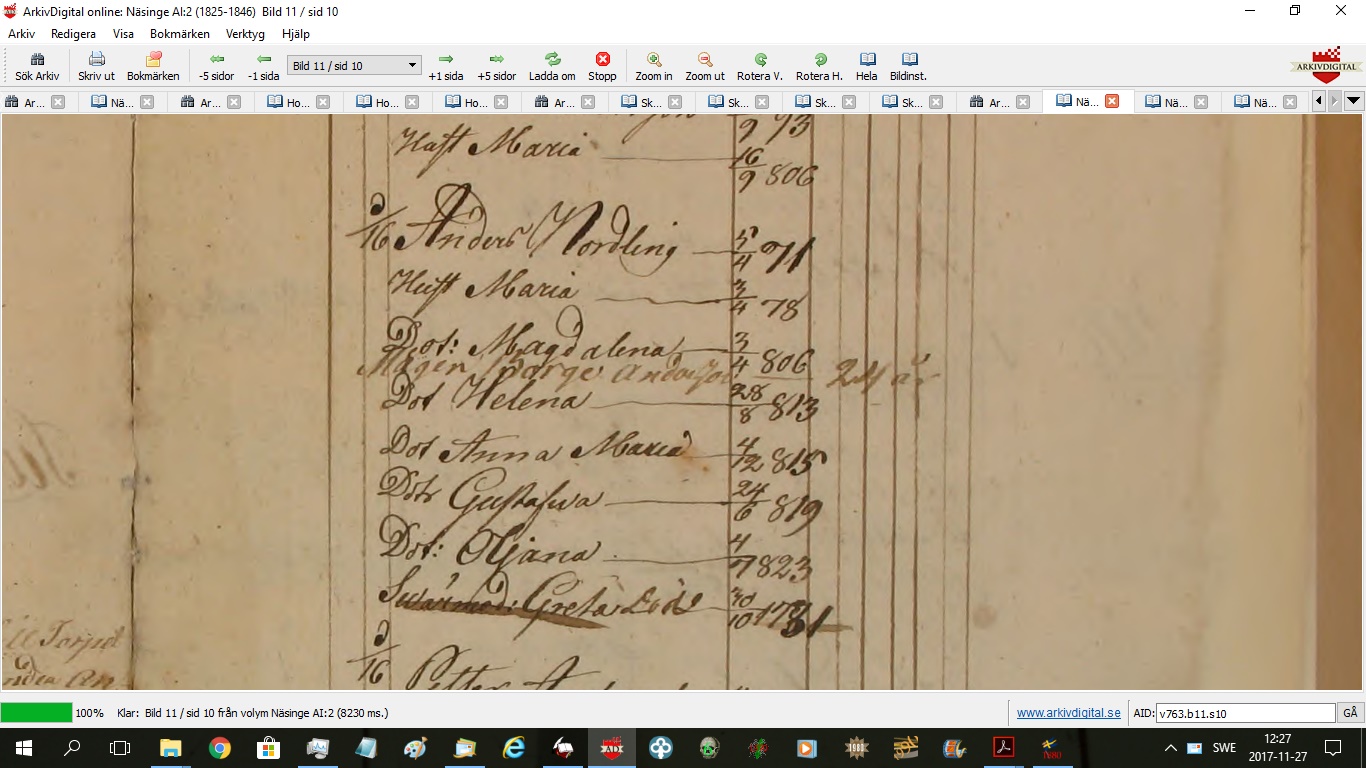 ArkivDigital online: Näsinge AI:2 (1825-1846) Bild 11 / sid 10
Arkiv Redigera Visa Bokmärken Verktyg Hjälp
Sök Arkiv Skriv ut Bokmärken -5 sidor -1 sida Bild 11 / sid 10 +1 sida +5 sidor Ladda om Stopp Zoom in Zoom ut Rotera V. Rotera H. Hela Bildinst. ARKIVDIGITAL
Ar... Nä... Ar... Ho... Ho... Ho... Ar... Sk... Sk... Sk... Sk... Ar... Nä... Nä... Nä...
9 93
Hust Maria 16/9 806
d/16 Anders Nordling 5/4 71
Hust Maria 3/4 78
Dot: Magdalena 3/4 806
Mågen Börge Andersson 24 år
Dot Helena 28/8 813
Dot Anna Maria 4/12 815
Dotr Gustafva 24/6 819
Dot: Oljana 4/7 823
Swärmod: Greta 30/10 1731
d/16 Petter
Torpet
100% Klar: Bild 11 / sid 10 från volym Näsinge AI:2 (8230 ms.) www.arkivdigital.se AID: v763.b11.s10 GÅ
SWE 12:27
2017-11-27